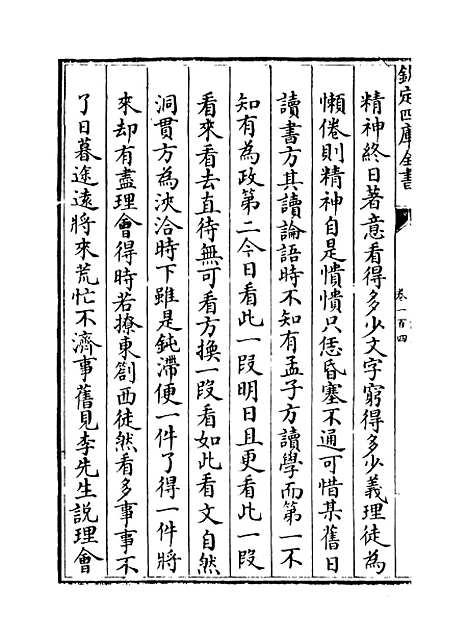 欽定四庫全書
卷一百四
精神終日著意看得多少文字窮得多少義理徒為
懶倦則精神自是憒憒只恁昏塞不通可惜某舊日
讀書方其讀論語時不知有孟子方讀學而第一不
知有為政第二今日看此一段明日且更看此一段
看來看去直待無可看方換一段看如此看文自然
洞貫方為浹洽時下雖是鈍滯便一件了得一件將
來却有盡理會得時若撩東劄西徒然看多事事不
了日暮途遠將來荒忙不濟事舊見李先生説理會